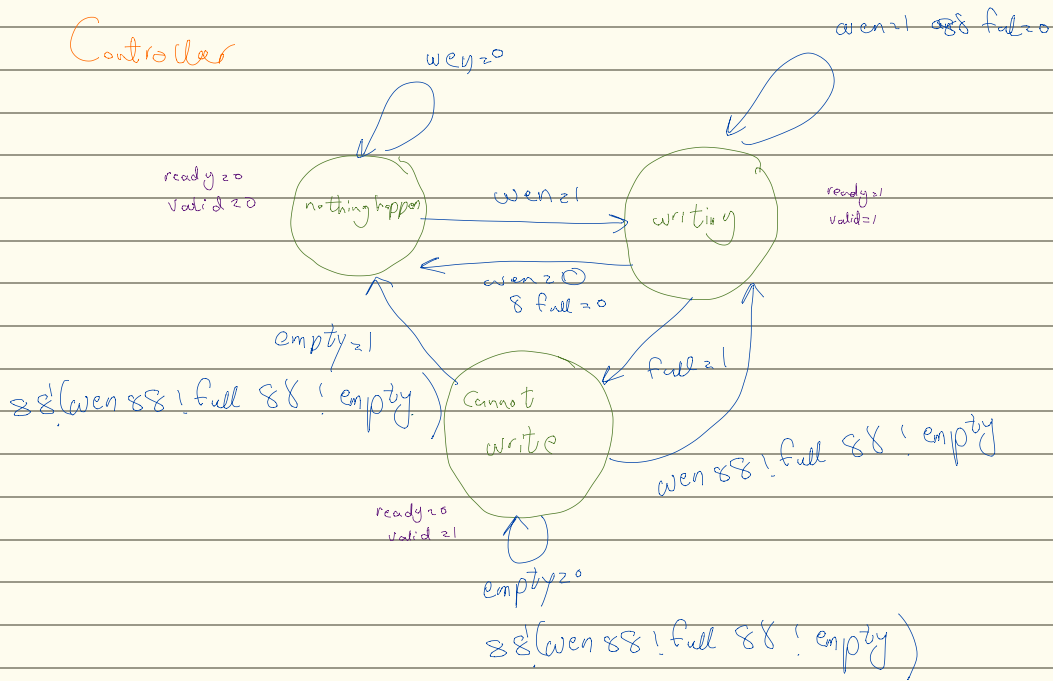 Controller
wen=0
wen=1 && full=0
ready=0
valid=0
nothing happen
wen=1
writing
ready=1
valid=1
wen=0
& full=0
empty=1
&&!(wen && !full && !empty)
full=1
cannot
write
wen && !full && !empty
ready=0
valid=1
empty=0
&&!(wen && !full && !empty)